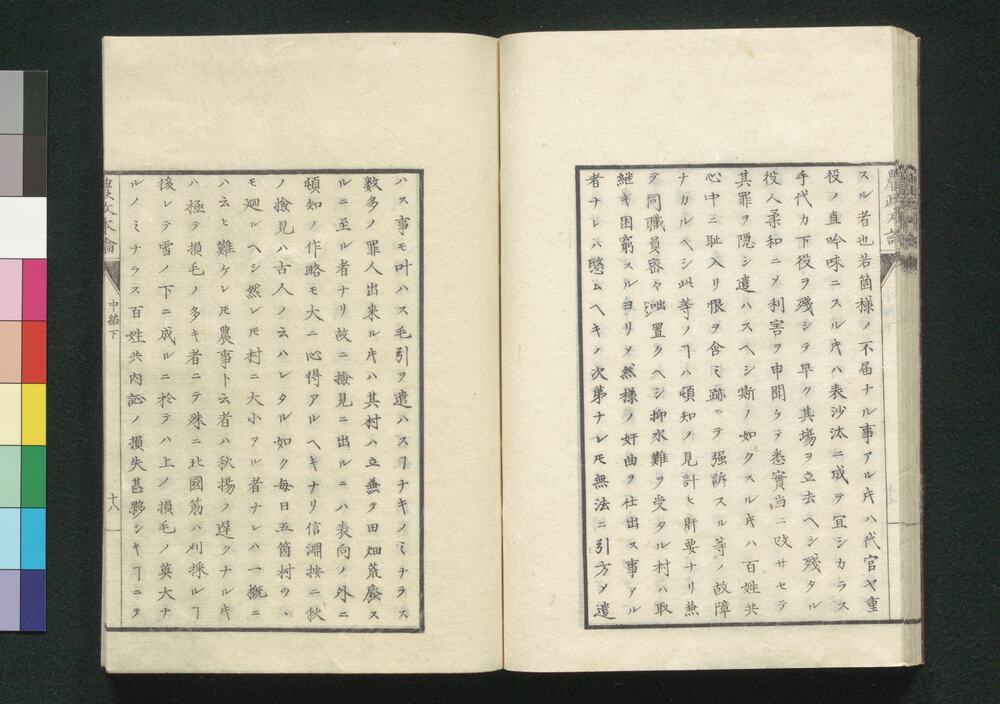 スル者也若箇様ノ不届ナル事アルㇳキハ代官ヤ重
役ノ直吟味ニスルㇳキハ表沙汰ニ成テ宜シカラス
手代カ下役ヲ殘シテ早ク其場ヲ立去ヘシ殘タル
役人柔和ニメ利害ヲ申聞ケテ悉實当ニ改サセテ
其罪ヲ隱シ遣ハスヘシ斯ノ如クスルㇳキハ百姓共
心中ニ耻入リ恨ヲ含ミ跡ニテ强訴スル等ノ故障
ナカルヘシ此等ノヿハ頓知ノ見計ヒ肝要ナリ兼
テ同職員密々咄置クヘシ抑水難ヲ受タル村ハ取
継キ困窮スルヨリメ然様ノ奸曲ヲ仕出ス事アル
者ナレハ愍ムヘキノ次第ナレㇳモ無法ニ引方ヲ遣
ハス事モ叶ハス毛引ヲ遣ハスヿナキノミナラス
数多ノ罪人出来ルㇳキハ其村ハ立兼テ田畑荒廢ス
ルニ至ル者ナリ故ニ撿見ニ出ルニハ表向ノ外ニ
頓知ノ作略モ大ニ心得アルヘキナリ信淵按ニ秋
ノ撿見ハ古人ノ云ハレタル如ク毎日五箇村ツヽ
モ廻ルヘシ然レㇳモ村ニ大小アル者ナレハ一概ニ
ハ云ヒ難ケレㇳモ農事ト云者ハ秋揚ノ遅クナルㇳキ
ハ極テ損毛ノ多キ者ニテ殊ニ北國筋ハ刈採ルヿ
後レテ雪ノ下ニ成ルニ於テハ上ノ損毛ノ莫大ナ
ルノミナラス百姓共内訟ノ損失甚夥シキヿニテ
農政本論
中編下
十八